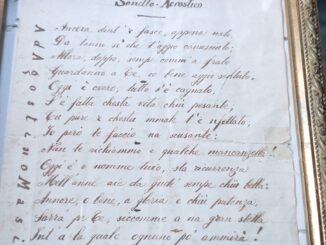 Sonetto-Acrostico
Ad Agostino Masi
Ancora dint' e fasce, appena nato,
Da tanno sì che t'aggio canusciuto;
Allora, doppo, sempe comm'a frato
Guardanno a te, co bene aggio
Oggi è overo, tutto s'è cagnato,
S'è fatta chesta vita chiù pesante,
Tu pure 'e chesta mmrale t'è
Io però te faccio na
Nun te richiammo e qualche mancanzella!
Oggi è o nomme tuio, sta ricorrenza
Mill'anne aie da gudé sempe chiù bella:
Annore, o bene, a gloria e chiù putenza,
Sarrà pe te, siccomme a na gran stella
Int'a la quale ognuno po' ammirà!